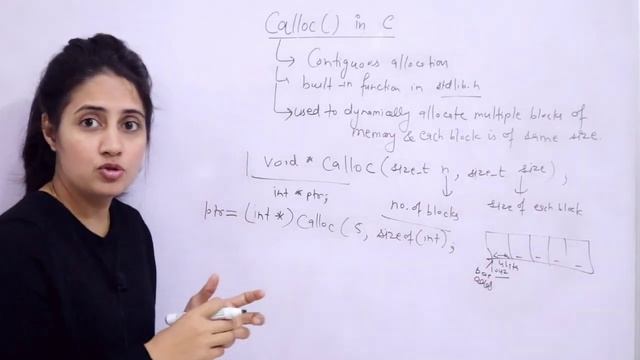 Calloc() in C
Contiguous allocation
built-in function in stdlib.h
used to dynamically allocate multiple blocks of
memory & each block is of same size.
void * Calloc (size_t n, size_t size);
int * ptr;
no. of blocks
size of each block
ptr = (int *) Calloc (5, sizeof(int);